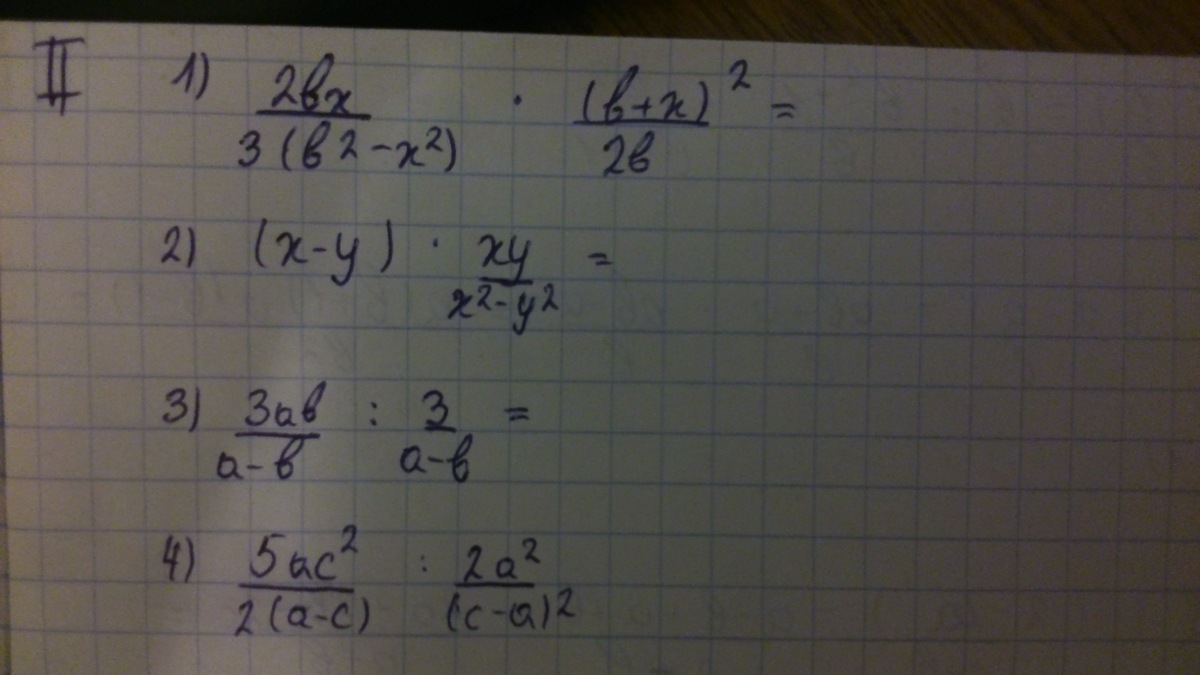 II 1) 2bx / 3(b2-x²) · (b+x)² / 2b =
2) (x-y) · xy / x²-y² =
3) 3ab / a-b : 3 / a-b =
4) 5ac² / 2(a-c) : 2a² / (c-a)²